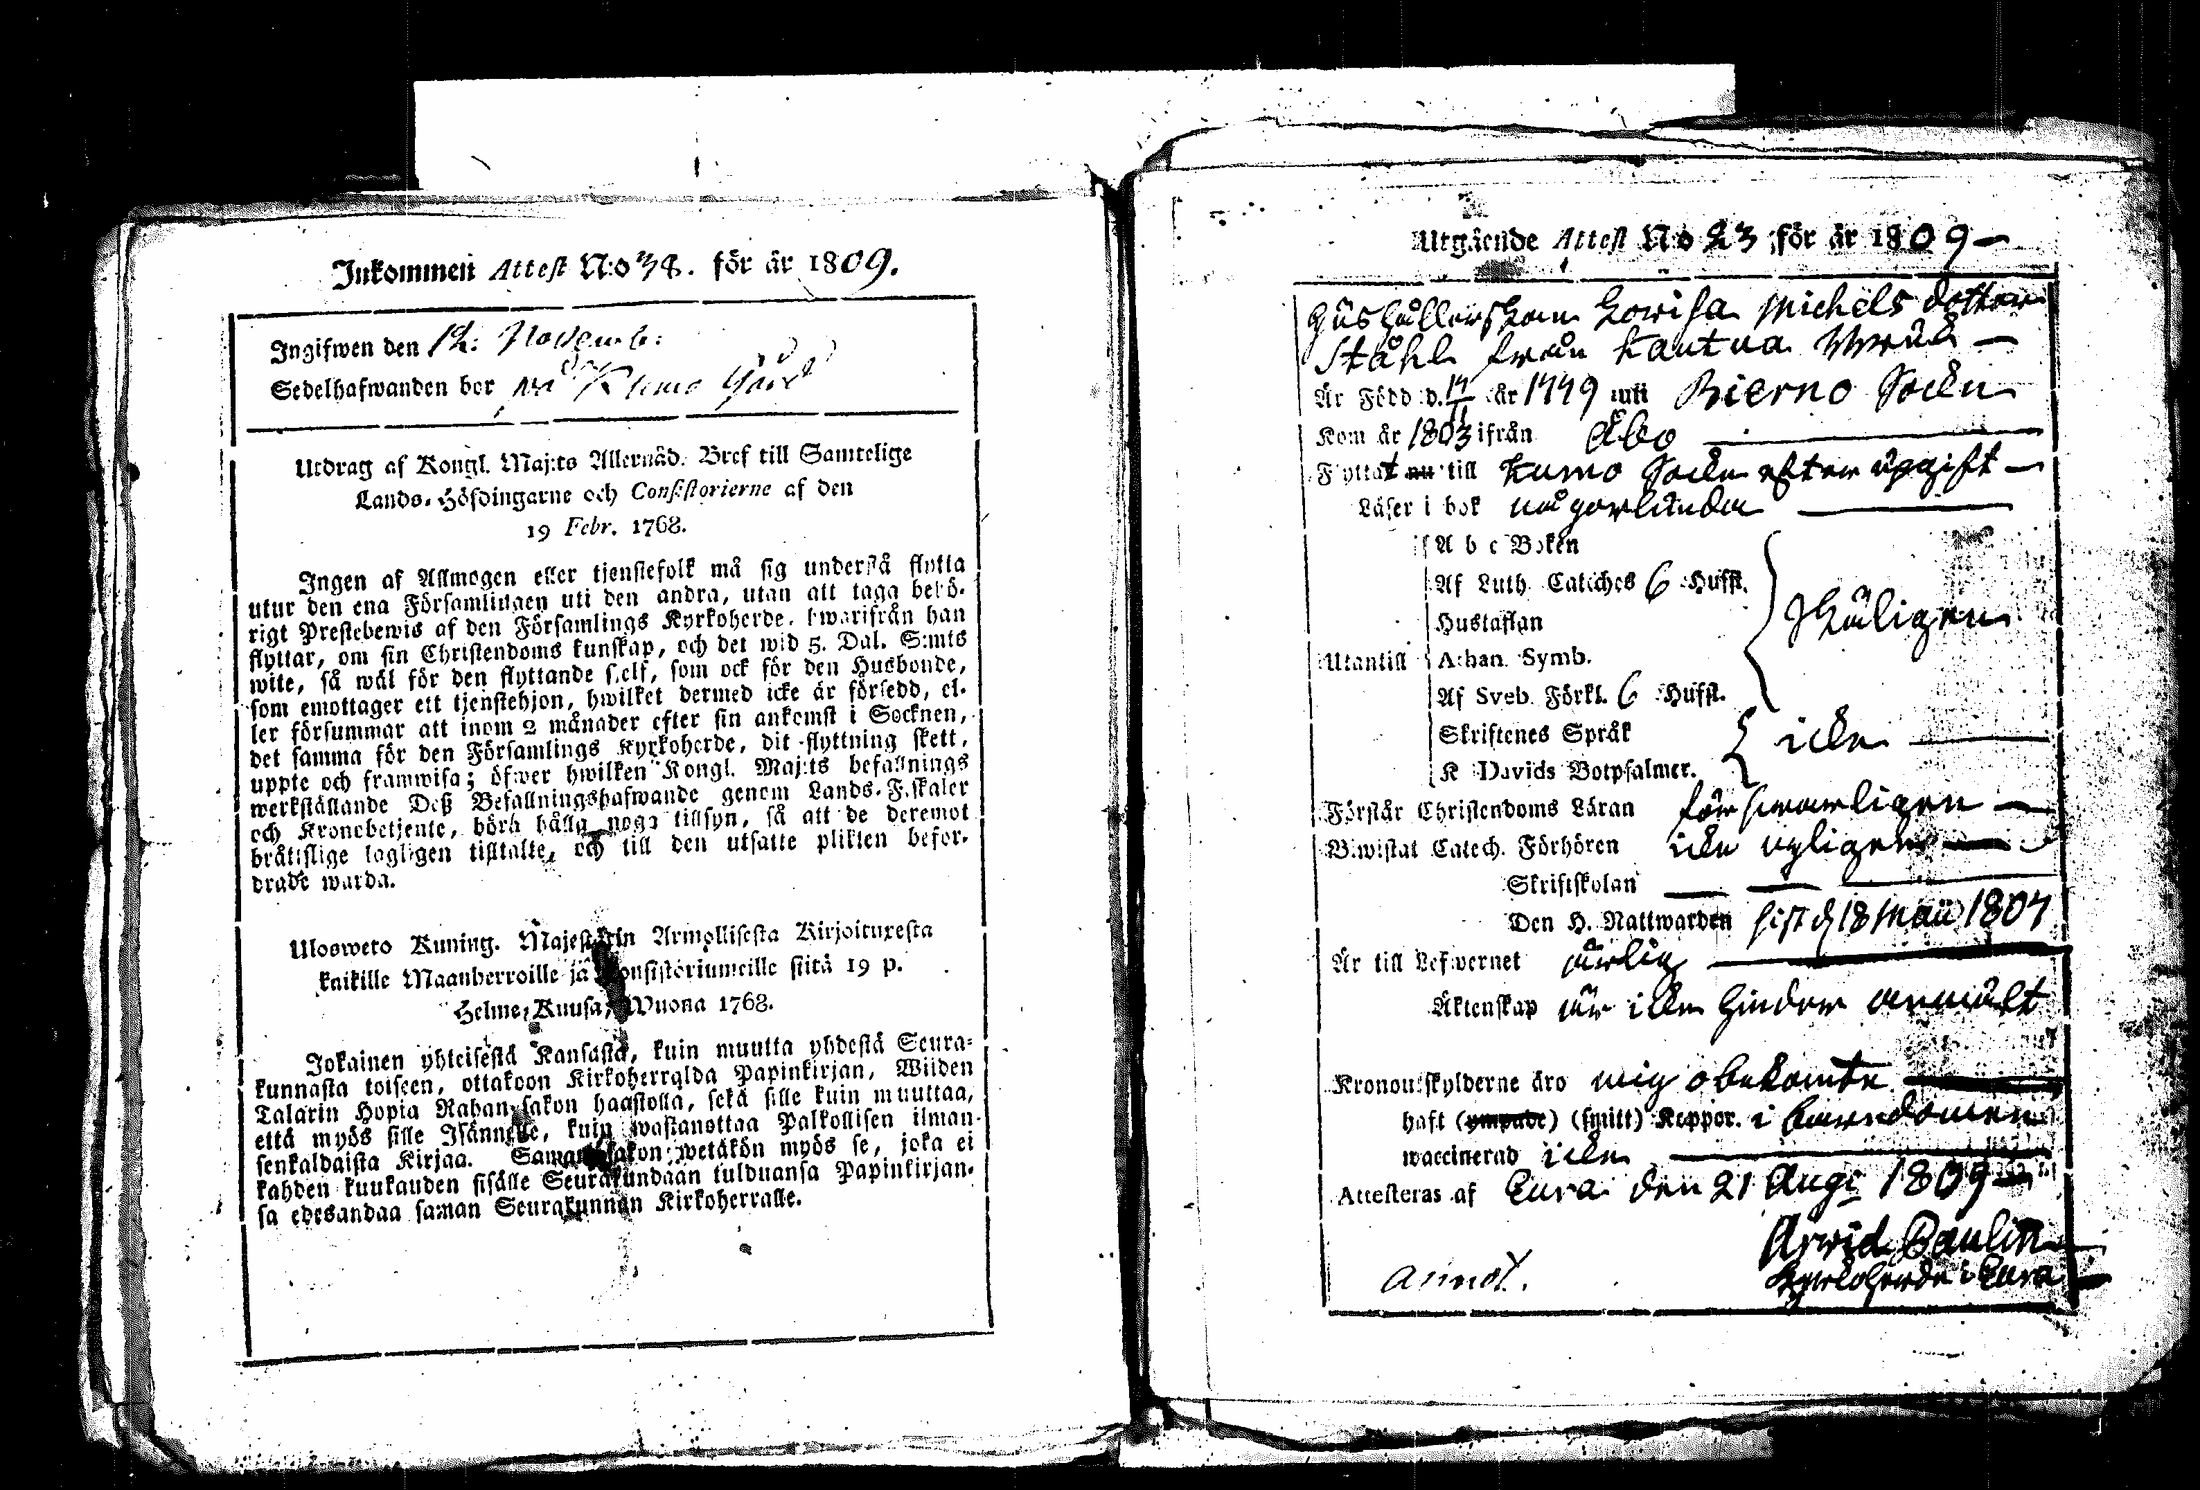 Inkommen Attest N:o 38. för år 1809.
Ingifwen den 12. Novemb:
Sedelhafwanden bor på Kumo Gård
Utdrag af Kongl. Maj:ts Allernåd. Bref till Samtelige
Lands-Höfdingarne och Consistorierne af den
19 Febr. 1768.
Ingen af Allmogen eller tjenstefolk må sig understå flytta
utur den ena Församlingen uti den andra, utan att taga behö-
rigt Prestebewis af den Församlings Kyrkoherde, hwarifrån han
flyttar, om sin Christendoms kunskap, och det wid 5. Dal. S:mts
wite, så wäl för den flyttande sjelf, som ock för den Husbonde,
som emottager ett tjenstehjon, hwilket dermed icke är försedd, el-
ler försummar att inom 2 månader efter sin ankomst i Socknen,
det samma för den Församlings Kyrkoherde, dit flyttning skett,
uppte och framwisa; öfwer hwilken Kongl. Maj:ts befallnings
werkställande Deß Befallningshafwande genom Lands-Fiskaler
och Kronobetjente, böra hålla noga tillsyn, så att de deremot
bråttslige lagligen tilltalte, och till den utsatte plikten befor-
drade warda.
Ulosweto Kuning. Majestätin Armollisesta Kirjoituxesta
kaikille Maanherroille ja Konsistoriumeille siitä 19 p.
Helme-Kuusa, Wuona 1768.
Jokainen yhteisestä Kansasta, kuin muutta yhdestä Seura-
kunnasta toiseen, ottakoon Kirkoherralda Papinkirjan, Wiiden
Talarin Hopia Rahan sakon haastolla, sekä sille kuin muuttaa,
että myös sille Isännälle, kuin wastanottaa Palkollisen ilman
senkaldaista Kirjaa. Saman sakon wetäkön myös se, joka ei
kahden kuukauden sisälle Seurakundaan tulduansa Papinkirjan-
sa edesandaa saman Seurakunnan Kirkoherralle.
Utgående Attest No 23 för år 1809
Hushållerskan Lowisa Michels dotter
Ståhl från Kautua Bruk
Är Född d. 17/11 år 1779 uti Bierno Sockn
Kom år 1803 ifrån Åbo
Flyttat nu till Kumo Sockn efter upgift
Läser i bok någorlunda
A b c Boken
Af Luth. Cateches 6 Hufst.
Hustaflan
Utantill Athan. Symb.
Af Sveb. Förkl. 6 Hufst.
Skriftenes Språk
K Davids Botpsalmer.
skäligen
icke
Förstår Christendoms Läran försvarligen
Biwistat Catech. Förhören icke
Skriftskolan
Den H. Nattwarden sist d 18 Maii 1807
Är till Lefwernet ärlig
Äktenskap är icke hinder anmält
Kronoutskylderne äro mig obekante
haft (ympade) (smitt) Koppor. i barndomen
waccinerad icke
Attesteras af Eura den 21 Aug: 1809
Arwid Paulin
Kyrkoherde i Eura
annot.